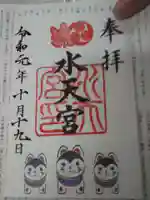 奉拝
水天宮
令和元年十月十九日